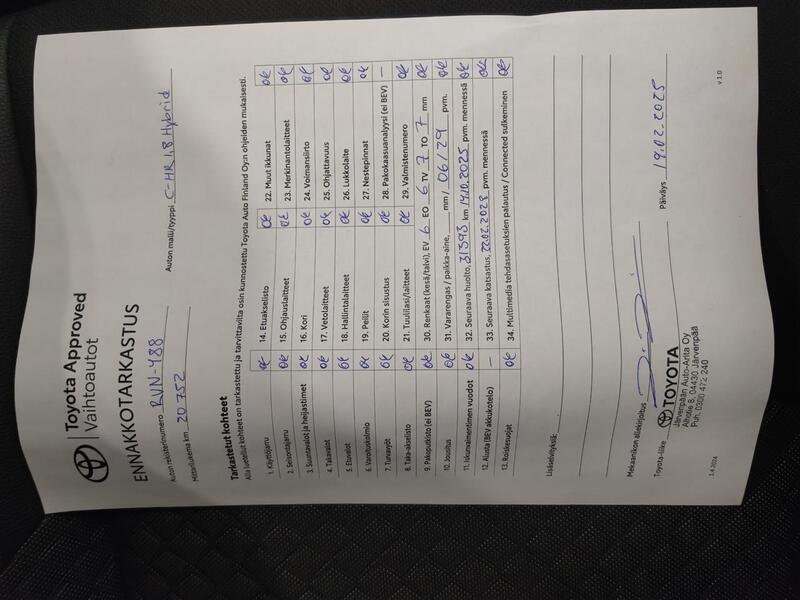 Toyota Approved
Vaihtoautot
ENNAKKOTARKASTUS
Auton rekisterinumero RVN-488 Auton malli/tyyppi C-HR 1,8 Hybrid
Mittarilukema km 20 752
Tarkastetut kohteet
Alla luetellut kohteet on tarkastettu ja tarvittavilta osin kunnostettu Toyota Auto Finland Oy:n ohjeiden mukaisesti.
1. Käyttöjarru ok 14. Etuakselisto ok 22. Muut ikkunat ok
2. Seisontajarru ok 15. Ohjauslaitteet ok 23. Merkinantolaitteet ok
3. Suuntavalot ja heijastimet ok 16. Kori ok 24. Voimansiirto ok
4. Takavalot ok 17. Vetolaitteet ok 25. Ohjattavuus ok
5. Etuvalot ok 18. Hallintalaitteet ok 26. Lukkolaite ok
6. Varoituskolmio ok 19. Peilit ok 27. Nestepinnat ok
7. Turvavyöt ok 20. Korin sisustus ok 28. Pakokaasuanalyysi (ei BEV) –
8. Taka-akselisto ok 21. Tuulilasi/laitteet ok 29. Valmistenumero ok
9. Pakoputkisto (ei BEV) ok 30. Renkaat (kesä/talvi), EV 6 EO 6 TV 7 TO 7 mm ok
10. Jousitus ok 31. Vararengas / paikka-aine, ___ mm / 06/29 pvm. ok
11. Iskunvaimentimen vuodot ok 32. Seuraava huolto, 31393 km 14.10.2025 pvm. mennessä ok
12. Alusta (BEV akkukotelo) – 33. Seuraava katsastus, 22.02.2028 pvm. mennessä ok
13. Roiskesuojat ok 34. Multimedia tehdasasetuksien palautus / Connected sulkeminen ok
Lisäselvityksiä:
Mekaanikon allekirjoitus
Toyota-liike TOYOTA Päiväys 19.02.2025
Järvenpään Auto-Arita Oy
Alhotie 8, 04430 Järvenpää
Puh. 0300 472 240
1.4.2024 v 1.0